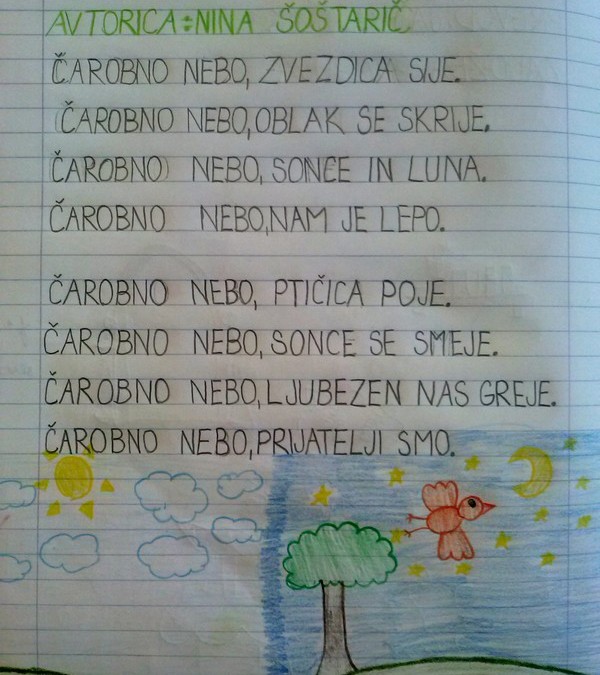 AVTORICA:NINA ŠOŠTARIČ
ČAROBNO NEBO, ZVEZDICA SIJE.
ČAROBNO NEBO, OBLAK SE SKRIJE.
ČAROBNO NEBO, SONCE IN LUNA.
ČAROBNO NEBO, NAM JE LEPO.
ČAROBNO NEBO, PTIČICA POJE.
ČAROBNO NEBO, SONCE SE SMEJE.
ČAROBNO NEBO, LJUBEZEN NAS GREJE.
ČAROBNO NEBO, PRIJATELJI SMO.